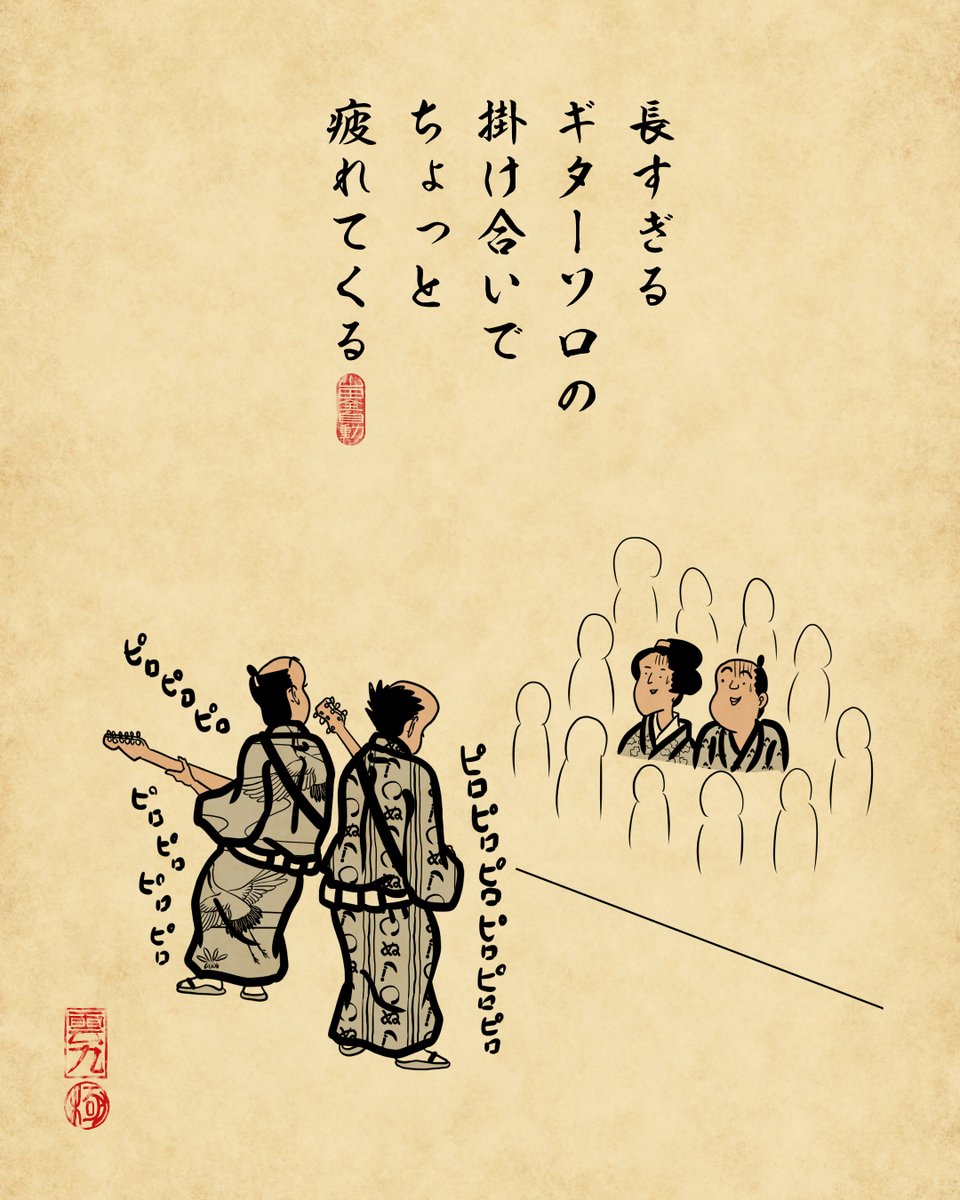 長すぎる
ギターソロの
掛け合いで
ちょっと
疲れてくる
ピロピロピロ
ピロピロピロピロ
ピロピロピロピロピロピロ